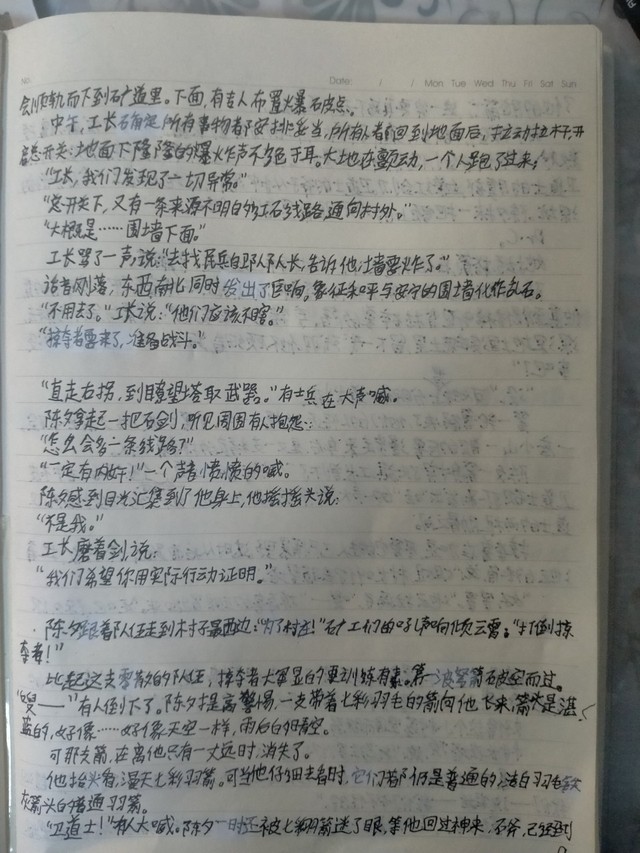 No.
Date: / / Mon Tue Wed Thu Fri Sat Sun
会顺轨而下到矿道里。下面,有专人布置火爆石皮点。
中午,工长确定所有事物都安排妥当,所有人都回到地面后,拉动拉杆,开
启总开关:地面下隆隆的爆炸声不绝于耳。大地在颤动,一个人跑了过来:
“工长,我们发现了一切异常。”
“总开关下,又有一条来源不明的红石线路通向村外。”
“大概是……围墙下面。”
工长骂了一声,说:“去找民兵自卫队队长,告诉他墙要炸了。”
话音刚落,东西南北同时发出了巨响。象征和平与安宁的围墙化作乱石。
“不用去了。”工长说:“他们应该不瞎。”
“掠夺者要来了,准备战斗。”
“直走右拐,到瞭望塔取武器。”有士兵在大声喊。
陈夕拿起一把石剑,听见周围有人抱怨:
“怎么会多一条线路?”
“一定有内奸!”一个声音愤愤的喊。
陈夕感到目光汇集到了他身上,他摇摇头说:
“不是我。”
工长磨着剑,说:
“我们希望你用实际行动证明。”
陈夕跟着队伍走到村子最西边:“为了村庄!”矿工们的吼声响彻云霄:“打倒掠
夺者!”
比起这支零散的队伍,掠夺者大军显的更训练有素。第一波箭破空而过。
“嗖——”有人倒下了。陈夕提高警惕,一支带着七彩羽毛的箭向他飞来,箭头是湛
蓝的,好像……好像天空一样,雨后的晴空。
可那支箭,在离他只有一丈远时,消失了。
他抬头看,漫天七彩羽箭。可当他仔细去看时,它们都仍是普通的,洁白羽毛
灰箭头的普通羽箭。
“卫道士!”有人大喊。陈夕一时还被七彩羽箭迷了眼,等他回过神来,石斧,已经到